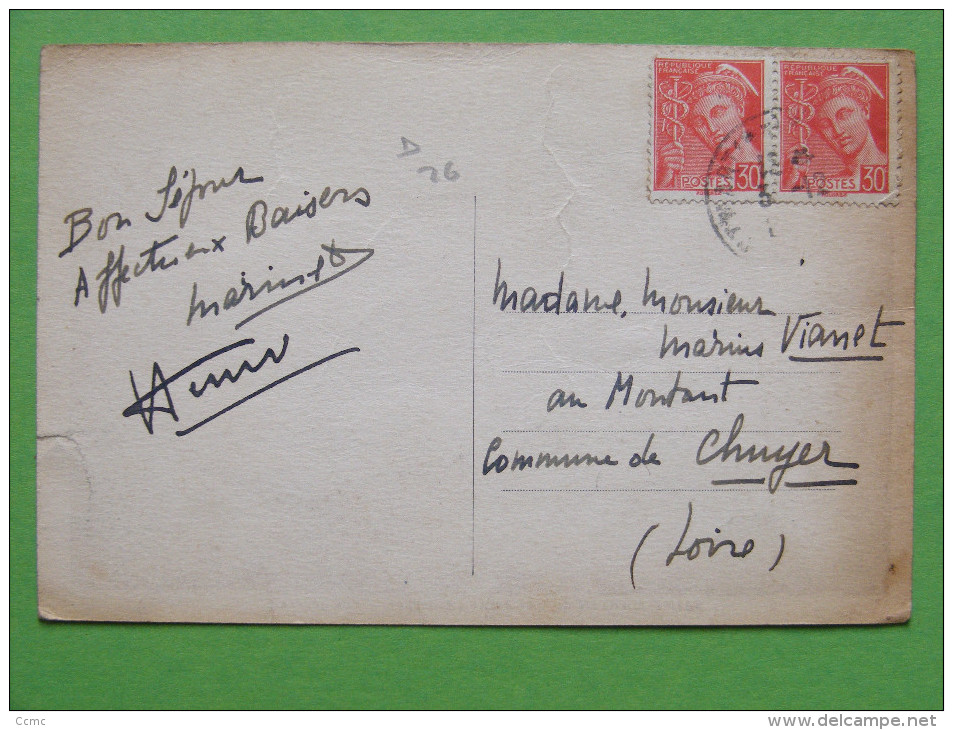 RÉPUBLIQUE
FRANÇAISE
POSTES 30
RÉPUBLIQUE
FRANÇAISE
POSTES 30
D
26
Bon Séjour
Affectueux Baisers
Madame, Monsieur
Marius Vianet
au Montant
Commune de Chuyer
(Loire)
Ccmc
www.delcampe.net